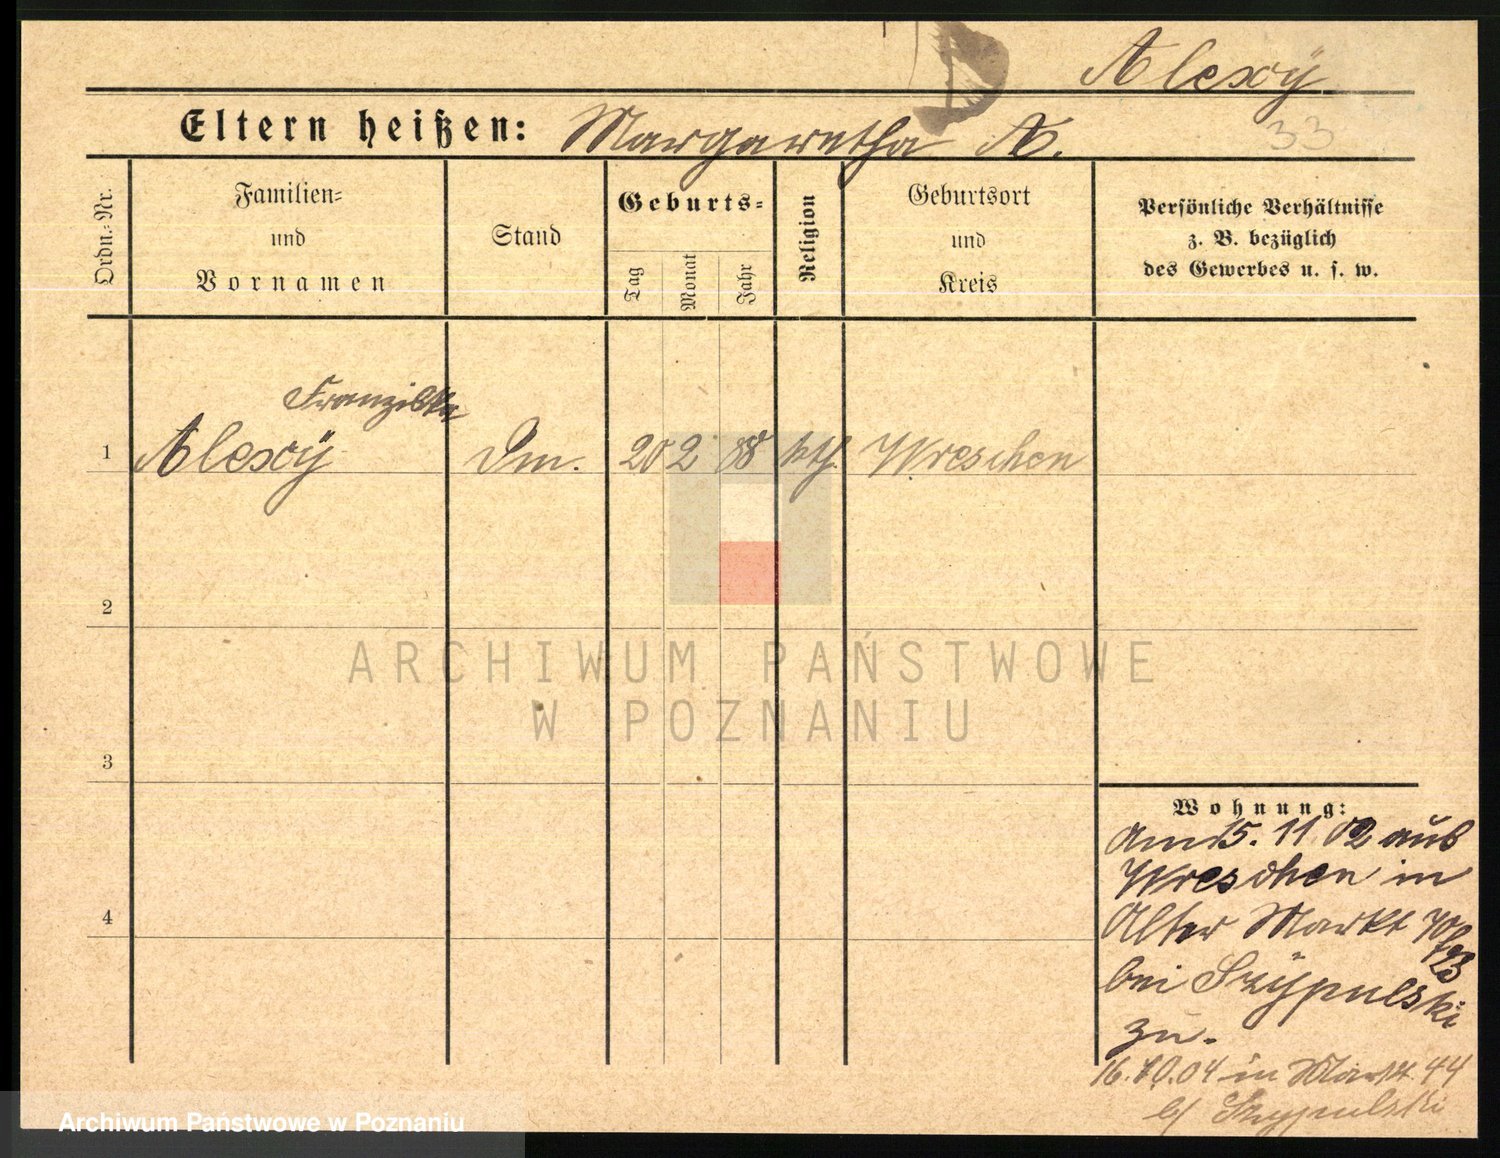 Alexÿ
Eltern heißen: Margaretha A.
33
Ordn.=Nr.
Familien=
und
Vornamen
Stand
Geburts=
Tag
Monat
Jahr
Religion
Geburtsort
und
Kreis
Persönliche Verhältnisse
z. B. bezüglich
des Gewerbes u. s. w.
Franziska
1 Alexÿ Dm. 20 2 88 kth. Wreschen
2
ARCHIWUM PAŃSTWOWE
W POZNANIU
3
Wohnung:
Am 15. 11 02 aus
Wreschen in
Alter Markt
bei Szÿpulski
zu.
4
16.10.04 in Markt 44
b/ Szypulski
Archiwum Państwowe w Poznaniu